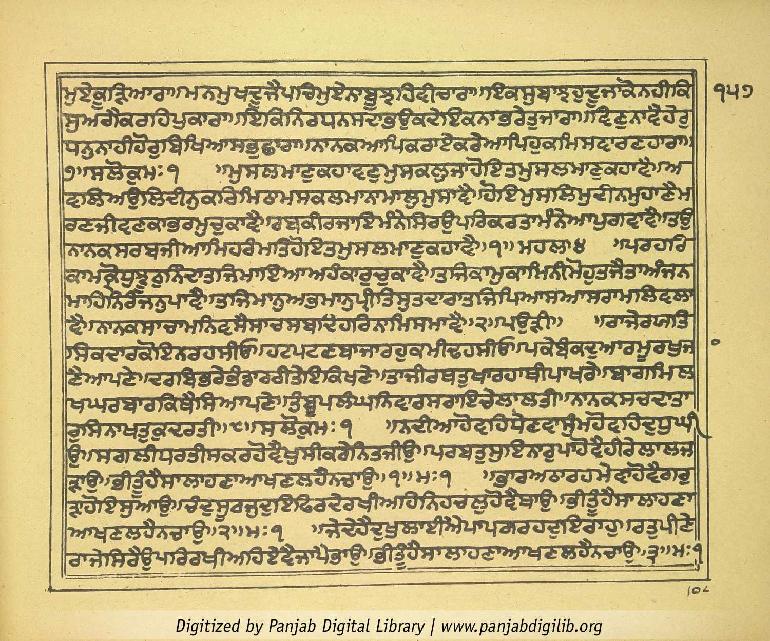 ਮੁਏਕੂੜਿਆਰਾ॥ਮਨਮੁਖਦੂਜੈਪਚਿਮੁਏਨਾਬੂਝਹਿਵੀਚਾਰਾ॥ਇਕਸੁਬਾਝਹੁਦੂਜਾਕੋਨਹੀਕਿ
ਸੁਅਗੈਕਰਹਿਪੁਕਾਰਾ॥ਇਕਿਨਿਰਧਨਸਦਭਉਕਦੇਇਕਨਾਭਰੇਤੁਜਾਰਾ॥ਵਿਣੁਨਾਵੈਹੋਰੁ
ਧਨੁਨਾਹੀਹੋਰੁਬਿਖਿਆਸਭੁਛਾਰਾ॥ਨਾਨਕਆਪਿਕਰਾਏਕਰੇਆਪਿਹੁਕਮਿਸਵਾਰਣਹਾਰਾ॥
੭॥ਸਲੋਕੁਮਃ੧ ॥ਮੁਸਲਮਾਣੁਕਹਾਵਣੁਮੁਸਕਲੁਜਾਹੋਇਤਮੁਸਲਮਾਣੁਕਹਾਵੈ॥ਅ
ਵਲਿਅਉਲਿਦੀਨੁਕਰਿਮਿਠਾਮਸਕਲਮਾਨਾਮਾਲੁਮੁਸਾਵੈ॥ਹੋਇਮੁਸਲਿਮੁਦੀਨਮੁਹਾਣੈਮ
ਰਣਜੀਵਣਕਾਭਰਮੁਚੁਕਾਵੈ॥ਰਬਕੀਰਜਾਇਮੰਨੇਸਿਰਉਪਰਿਕਰਤਾਮੰਨੇਆਪੁਗਵਾਵੈ॥ਤਉ
ਨਾਨਕਸਰਬਜੀਆਮਿਹਰੰਮਤਿਹੋਇਤਮੁਸਲਮਾਣੁਕਹਾਵੈ॥੧॥ਮਹਲਾ੪ ॥ਪਰਹਰਿ
ਕਾਮਕ੍ਰੋਧੁਝੂਠੁਨਿੰਦਾਤਜਿਮਾਇਆਅਹੰਕਾਰੁਚੁਕਾਵੈ॥ਤਜਿਕਾਮੁਕਾਮਿਨੀਮੋਹੁਤਜੈਤਾਅੰਜਨ
ਮਾਹਿਨਿਰੰਜਨੁਪਾਵੈ॥ਤਜਿਮਾਨੁਅਭਮਾਨੁਪ੍ਰੀਤਿਸੁਤਦਾਰਾਤਜਿਪਿਆਸਆਸਰਾਮਲਿਵਲਾ
ਵੈ॥ਨਾਨਕਸਾਚਾਮਨਿਵਸੈਸਾਚਸਬਦਿਹਰਿਨਾਮਿਸਮਾਵੈ॥੨॥ਪਉੜੀ॥ ॥ਰਾਜੇਰਯਤਿ
ਸਿਕਦਾਰਕੋਇਨਰਹਸੀਓ॥ਹਟਪਟਣਬਾਜਾਰਹੁਕਮੀਢਹਸੀਓ॥ਪਕੇਬੰਕਦੁਆਰਮੂਰਖੁਜ
ਣੈਆਪਣੇ॥ਦਰਬਿਭਰੇਭੰਡਾਰਰੀਤੇਇਕਿਖਣੇ॥ਤਾਜੀਰਥਤੁਖਾਰਹਾਥੀਪਾਖਰੇ॥ਬਾਗਮਿਲ
ਖਘਰਬਾਰਕਿਥੈਸਿਆਪਣੇ॥ਤੰਬੂਪਲੰਘਨਿਵਾਰਸਰਾਇਚੇਲਾਲਤੀ॥ਨਾਨਕਸਚਦਾਤਾ
ਰੁਸਿਨਾਖਤੁਕੁਦਰਤੀ॥੮॥ਸਲੋਕੁਮਃ੧ ॥ਨਦੀਆਹੋਵਹਿਧੇਣਵਾਸੁੰਮਹੋਵਹਿਦੁਧੁਘੀ
ਉ॥ਸਗਲੀਧਰਤੀਸਕਰਹੋਵੈਖੁਸੀਕਰੇਨਿਤਜੀਉ॥ਪਰਬਤੁਸੁਇਨਾਰੁਪਾਹੋਵੈਹੀਰੇਲਾਲਜ
ੜਾਉ॥ਭੀਤੂੰਹੈਸਾਲਾਹਣਾਆਖਣਲਹੈਨਚਾਉ॥੧॥ਮਃ੧ ॥ਭਾਰਅਠਾਰਹਮੇਵਾਹੋਵੈਗਰੁ
ੜਾਹੋਇਸੁਆਉ॥ਚੰਦੁਸੂਰਜੁਦੁਇਫਿਰਦੇਰਖੀਅਹਿਨਿਹਚਲੁਹੋਵੈਥਾਉ॥ਭੀਤੂੰਹੈਸਾਲਾਹਣਾ
ਆਖਣਲਹੈਨਚਾਉ॥੨॥ਮਃ੧ ॥ਜੇਦੇਹੈਦੁਖੁਲਾਈਐਪਾਪਗਰਹਦੁਇਰਾਹੁ॥ਰਤੁਪੀਣੇ
ਰਾਜੇਸਿਰੈਉਪਰਿਰਖੀਅਹਿਏਵੈਜਾਪੈਭਾਉ॥ਭੀਤੂੰਹੈਸਾਲਾਹਣਾਆਖਣਲਹੈਨਚਾਉ॥੩॥ਮਃ੧
੧੫੭
Digitized by Panjab Digital Library | www.panjabdigilib.org